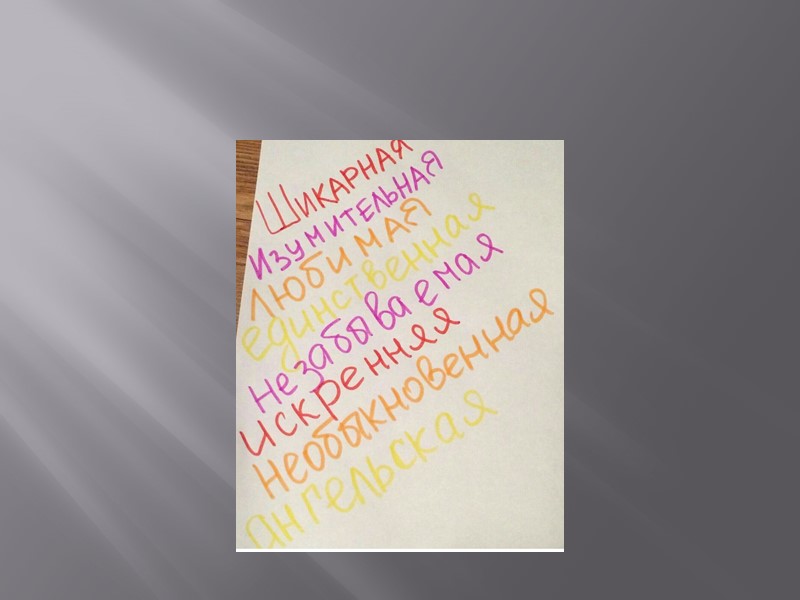 ШИКАРНАЯ
ИЗУМИТЕЛЬНАЯ
ЛЮБИМАЯ
единственная
незабываемая
искренняя
необыкновенная
ангельская